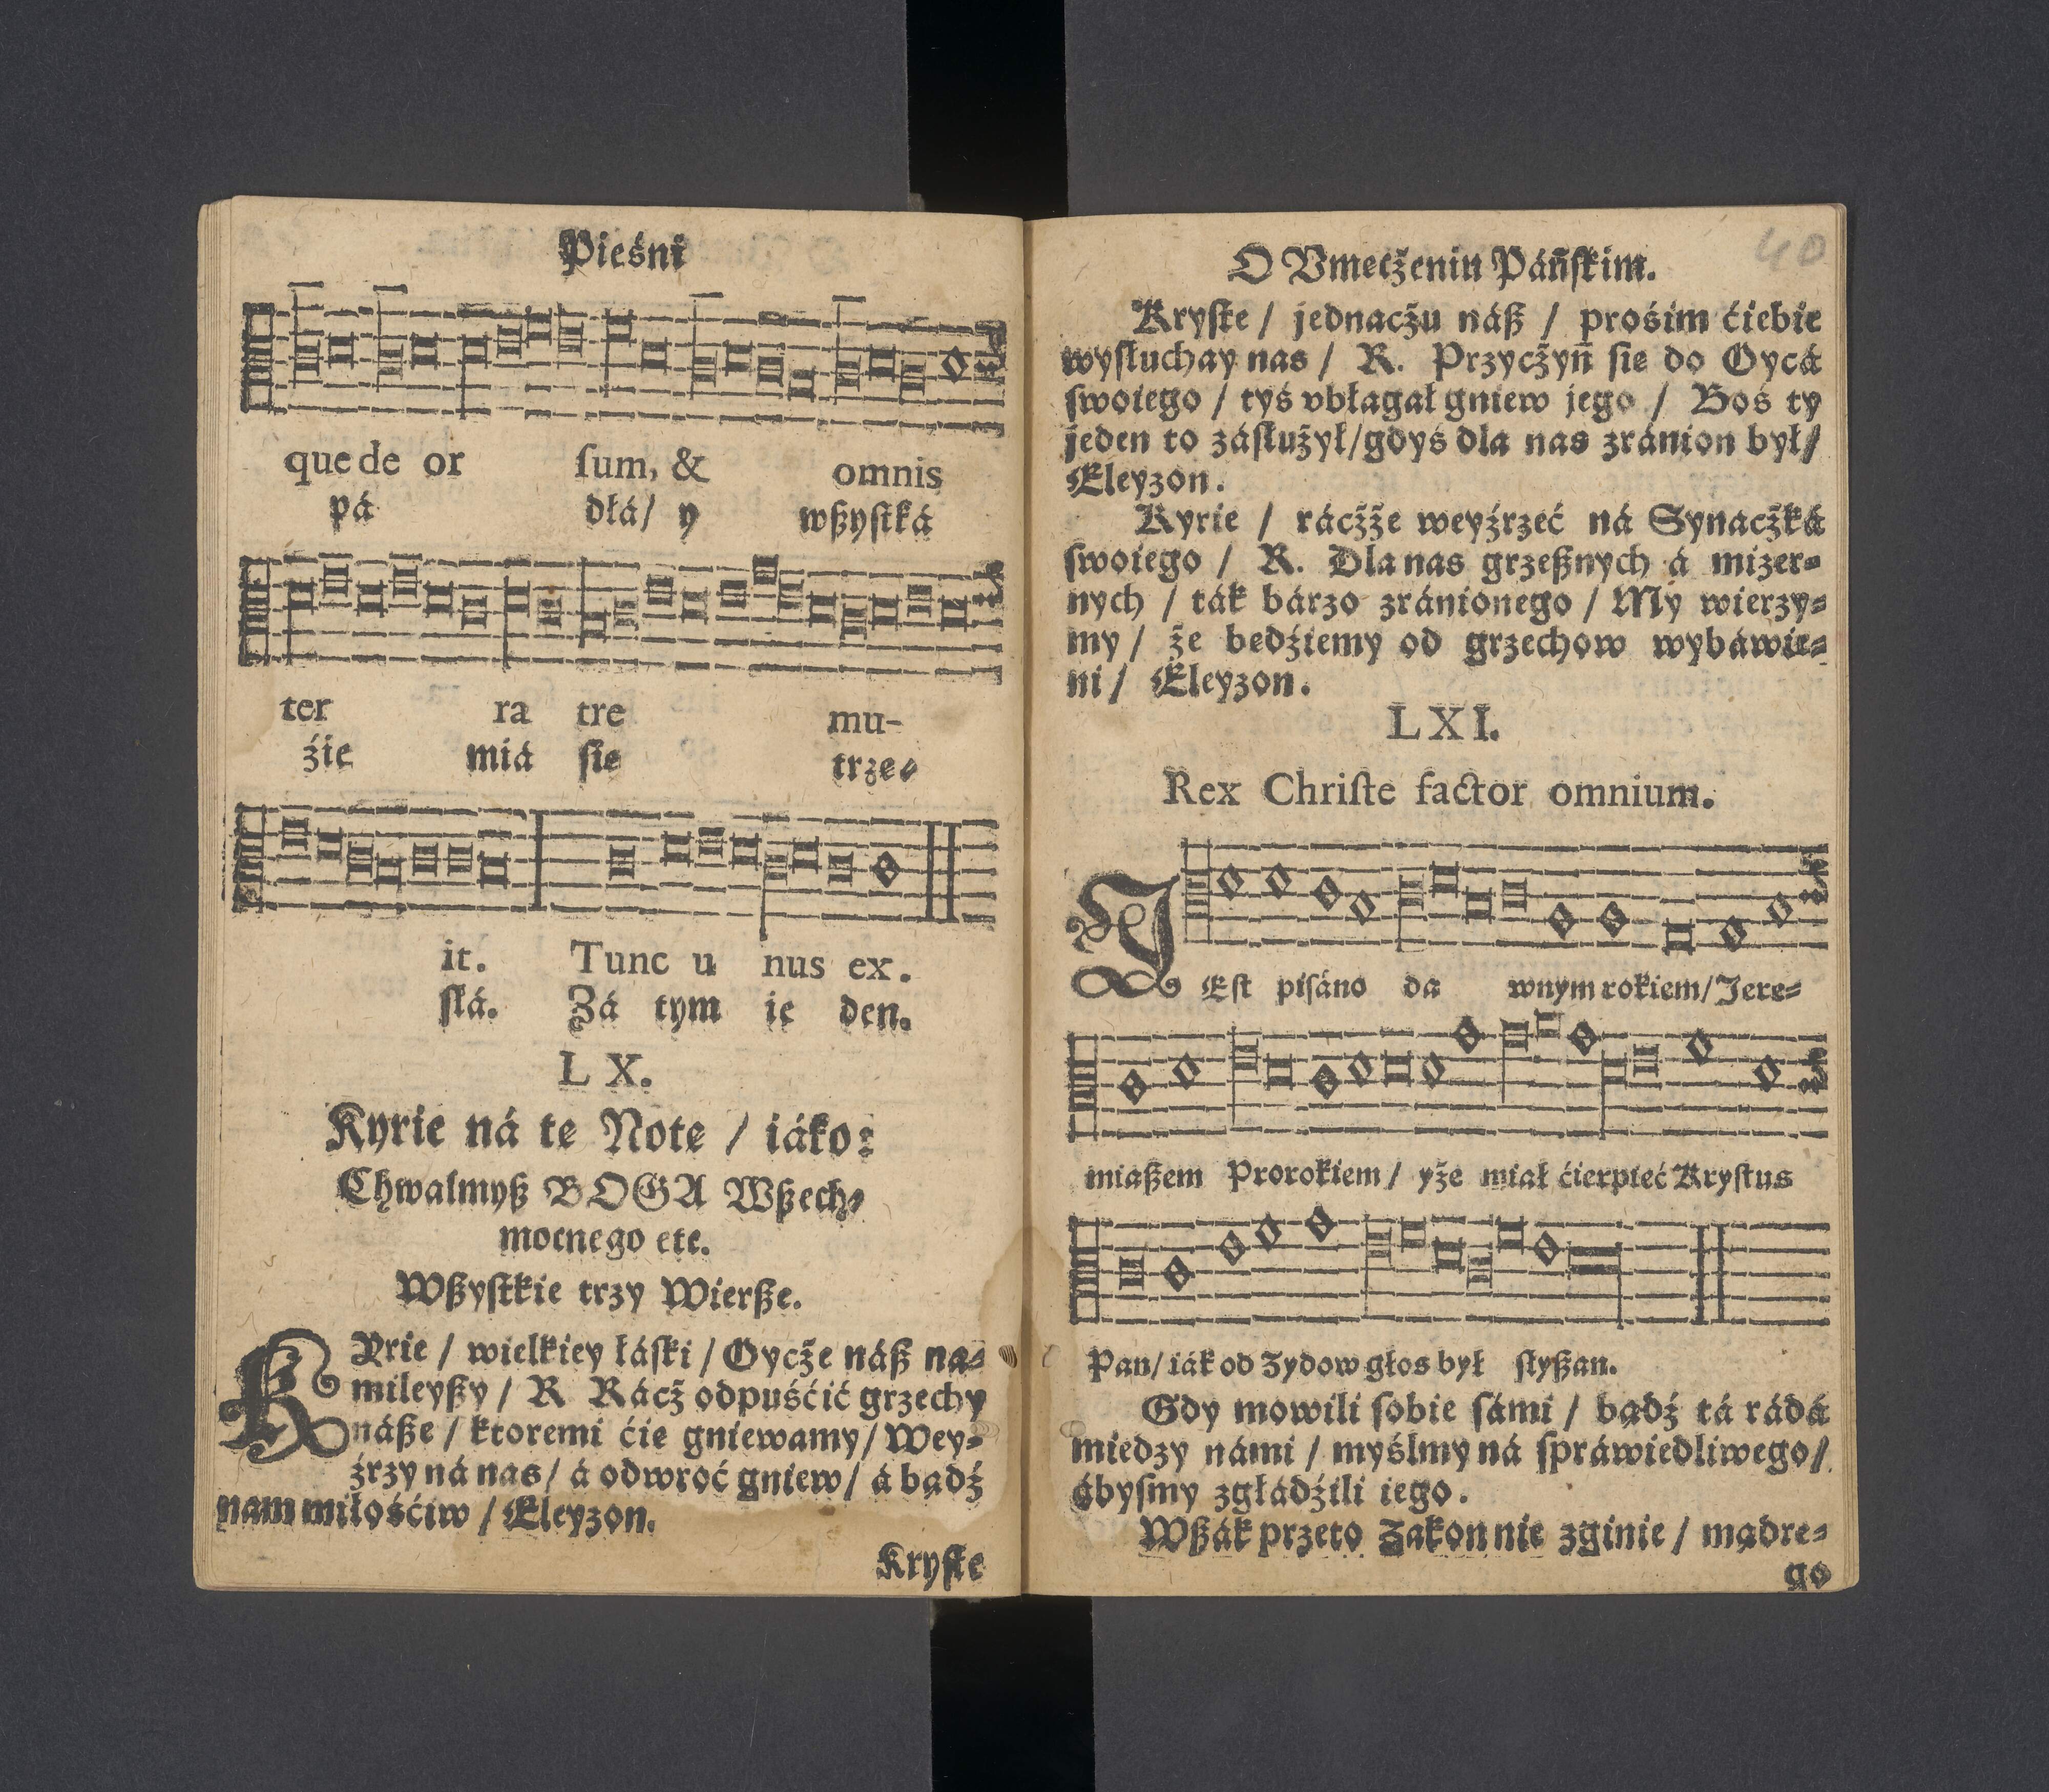 Pieśni
que de or sum, & omnis
pá dłá/ y wßyſtká
ter ra tre mu-
źie miá ſie trze-
it. Tunc u nus ex.
ſłá. Zá tym ie den.
L X.
Kyrie ná te Note / iáko:
Chwalmyß BOGA Wßech-
mocnego etc.
Wßyſtkie trzy Wierße.
KYrie / wielkiey łáſki / Oycże náß na-
mileyßy / R Rácż odpuśćić grzechy
náße / ktoremi ćie gniewamy / Wey-
źrzy ná nas / á odwroć gniew / á bądź
nam miłośćiw / Eleyzon.
Kryſte
40
O Vmecżeniu Páńſkim.
Kryſte / jednacżu náß / prośim ćiebie
wyſłuchay nas / R. Przycżyń ſie do Oycá
ſwoiego / tyś vbłagał gniew jego / Boś ty
jeden to záſłużył/gdyś dla nas zránion był/
Eleyzon.
Kyrie / rácżże weyźrzeć ná Synacżká
ſwoiego / R. Dla nas grzeßnych á mizer-
nych / ták bárzo zránionego / My wierzy-
my / że bedźiemy od grzechow wybáwie-
ni / Eleyzon.
LXI.
Rex Chriſte factor omnium.
JEſt piſáno da wnym rokiem/ Jere-
miaßem Prorokiem / yże miał ćierpieć Kryſtus
Pan/ iák od Zydow głos był ſłyßan.
Gdy mowili ſobie ſámi / bądź tá rádá
miedzy námi / myślmy ná ſpráwiedliwego/
ábyſmy zgłádźili iego.
Wßák przeto Zakon nie zginie / mądre-
go